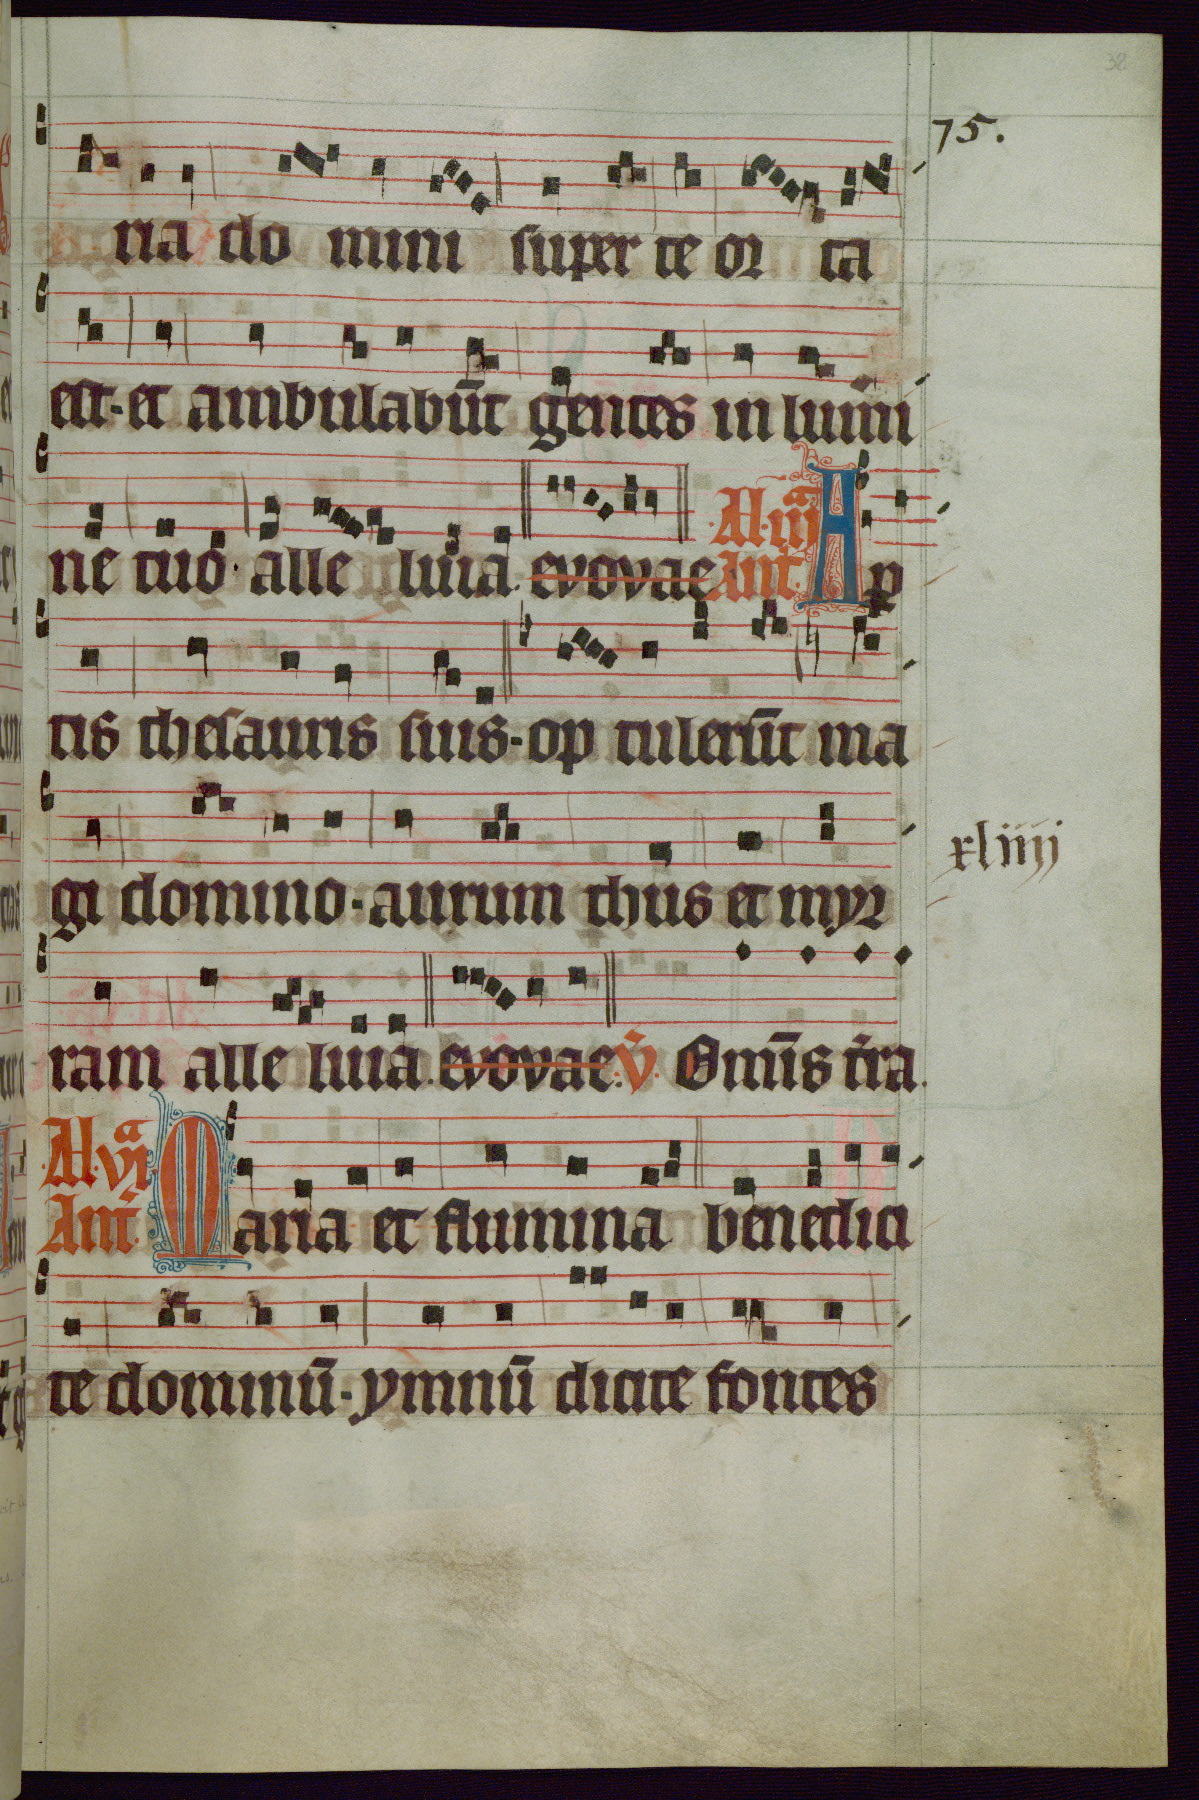 38
75.
ria do mini super te or ta
est· et ambulabūt gentes in lumi
ne tuo· alle luia. evovae Al·iijᵃ Ant. Ap
tis thesauris suis· op tulerūt ma
gi domino· aurum thus et myr
xliiij
ram alle luia. evovae. V̄. Omīs t̄ra.
Al·vjᵃ Ant. Maria et flumina benedici
te dominū· ymnū dicite fontes